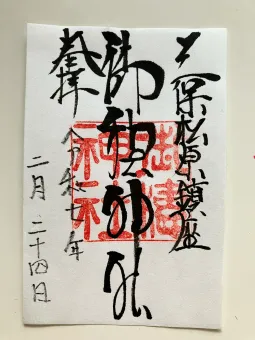 三保松原鎮座
御穂神社
奉拝
令和七年
二月二十四日